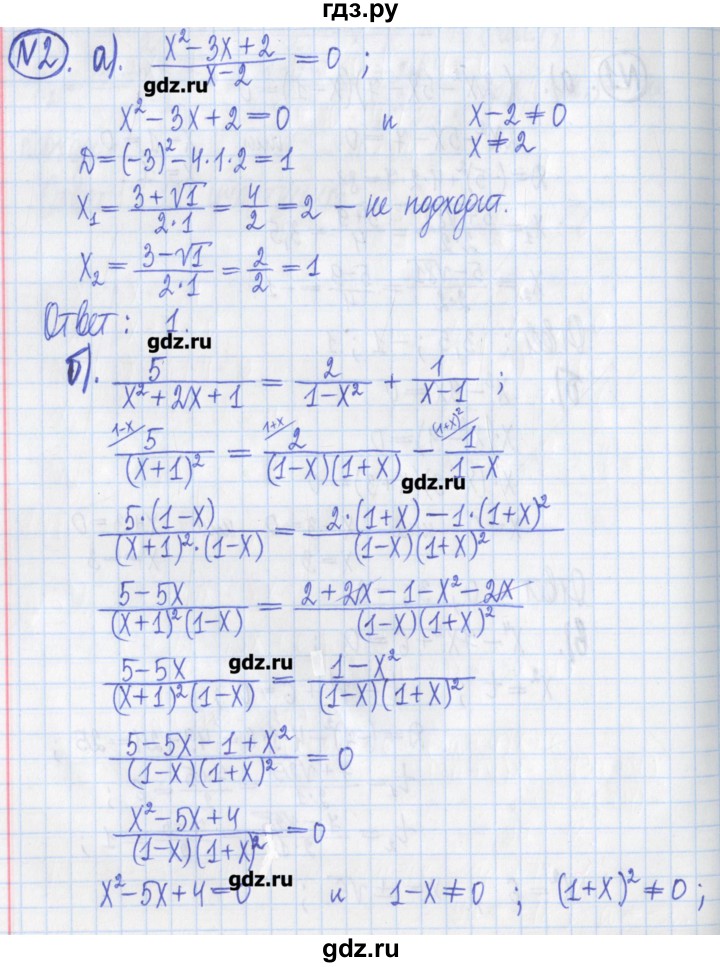 гдз.ру
N2. а). (x² − 3x + 2)/(x − 2) = 0 ;
gdz.ru
x² − 3x + 2 = 0 и x − 2 ≠ 0
x ≠ 2
D = (−3)² − 4·1·2 = 1
x₁ = (3 + √1)/(2·1) = 4/2 = 2 − не подходит.
x₂ = (3 − √1)/(2·1) = 2/2 = 1
Ответ: 1.
gdz.ru
б). 5/(x² + 2x + 1) = 2/(1 − x²) + 1/(x − 1) ;
1−x 1+x (1+x)²
5/(x + 1)² = 2/((1 − x)(1 + x)) − 1/(1 − x)
gdz.ru
5·(1 − x)/((x + 1)²·(1 − x)) = (2·(1 + x) − 1·(1 + x)²)/((1 − x)(1 + x)²)
(5 − 5x)/((x + 1)²(1 − x)) = (2 + 2x − 1 − x² − 2x)/((1 − x)(1 + x)²)
gdz.ru
(5 − 5x)/((x + 1)²(1 − x)) = (1 − x²)/((1 − x)(1 + x)²)
(5 − 5x − 1 + x²)/((1 − x)(1 + x)²) = 0
(x² − 5x + 4)/((1 − x)(1 + x)²) = 0
gdz.ru
x² − 5x + 4 = 0 и 1 − x ≠ 0 ; (1 + x)² ≠ 0 ;
gdz.ru